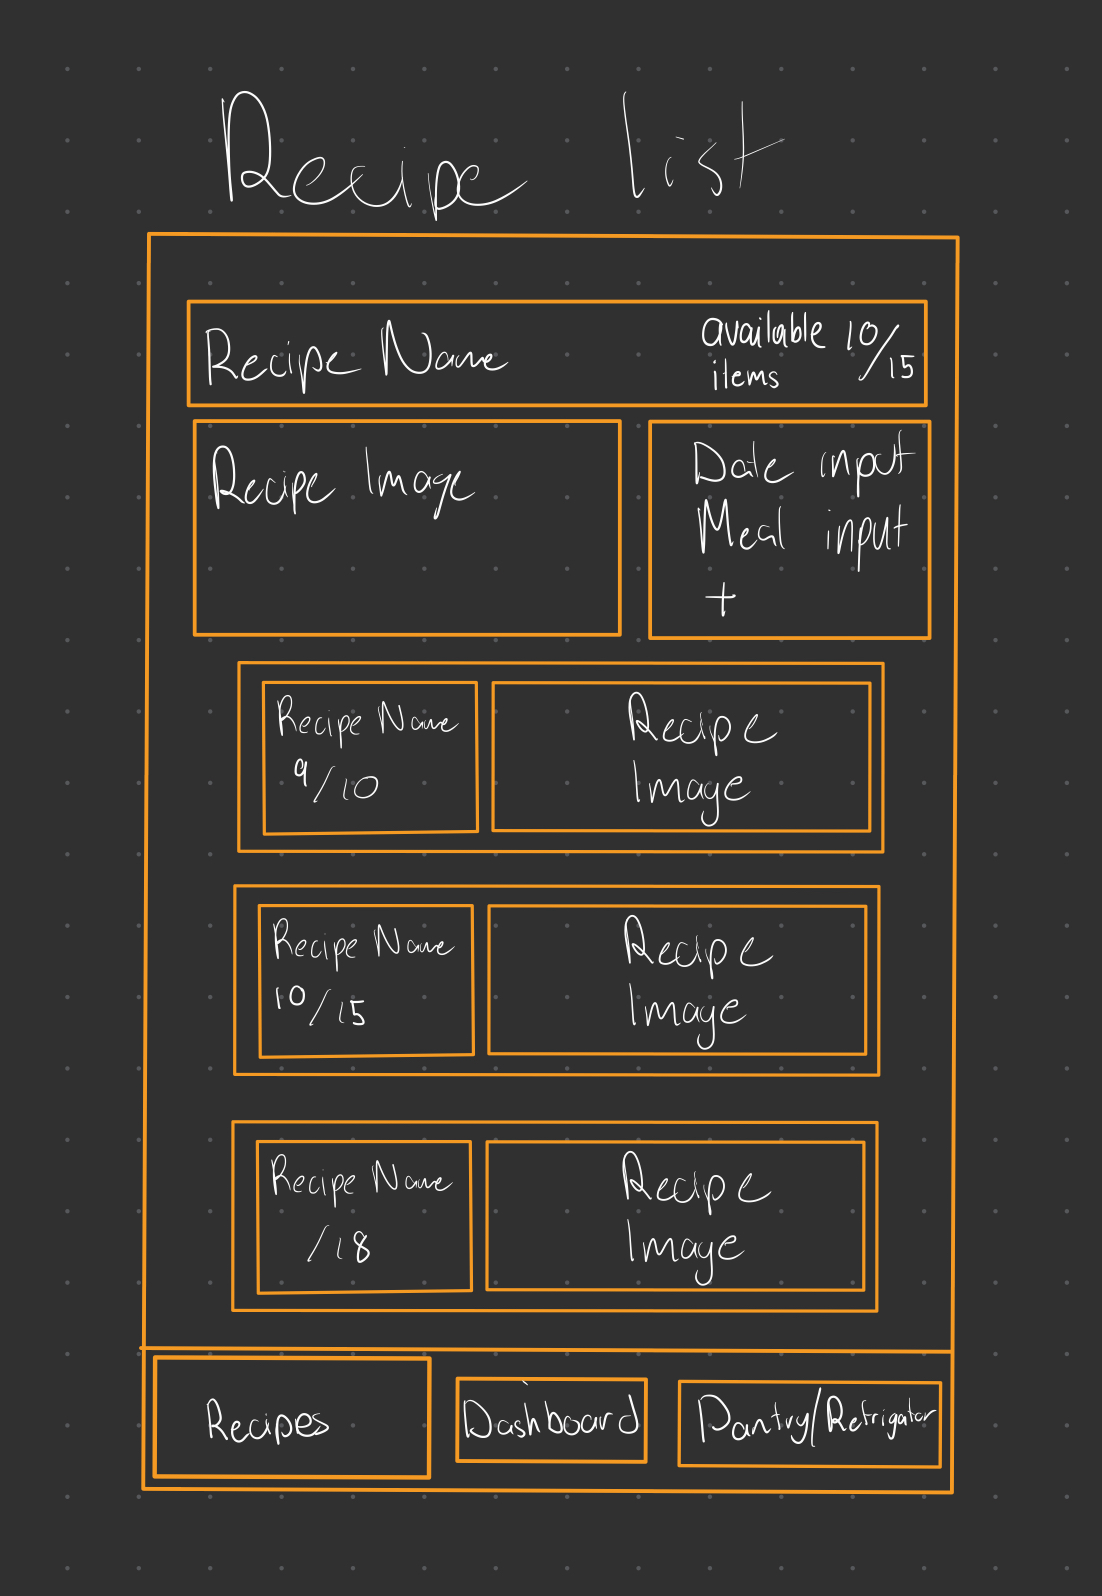 Recipe list
Recipe Name
available 10/15
items
Recipe Image
Date input
Meal input
+
Recipe Name
9/10
Recipe
Image
Recipe Name
10/15
Recipe
Image
Recipe Name
/18
Recipe
Image
Recipes
Dashboard
Pantry/Refrigator